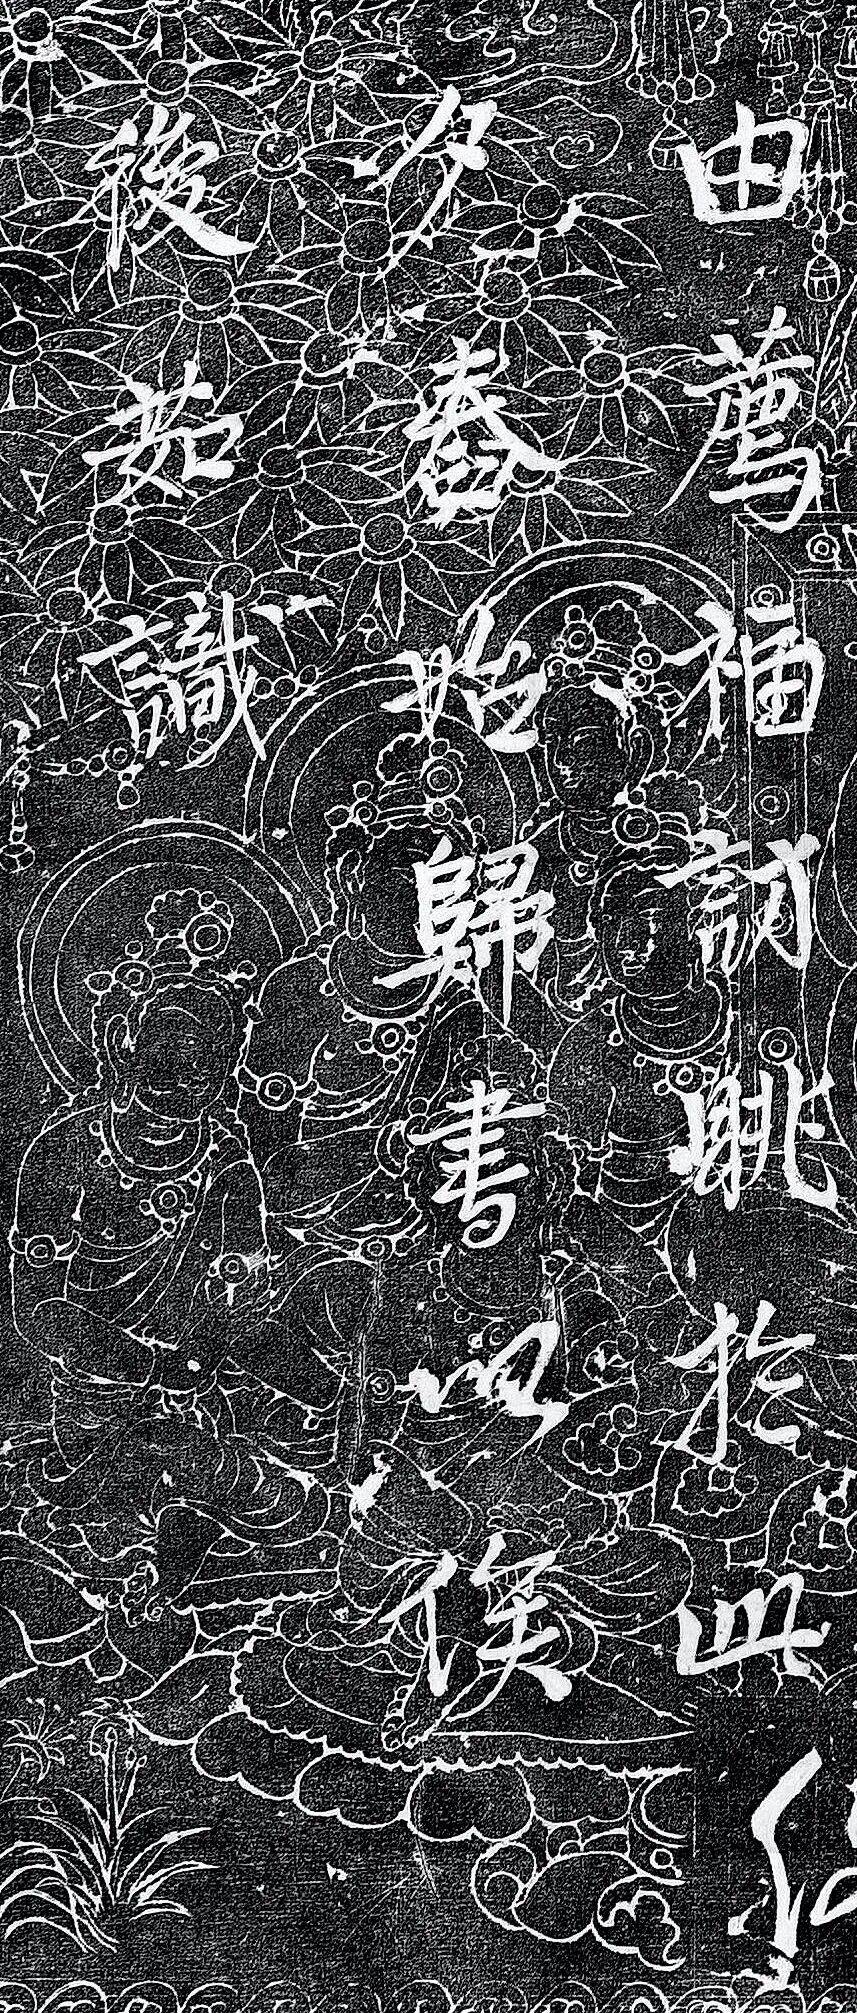 由薦福眺於此
夕舂始歸書以俟
後茹識